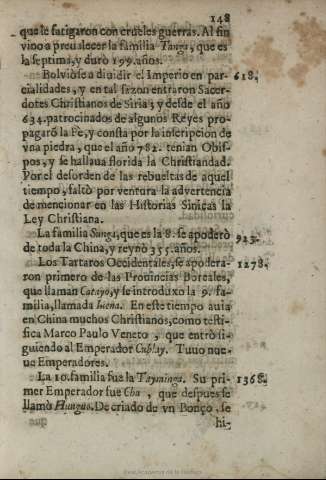 148
que se fatigaron con crueles guerras. Al fin
vino a preualecer la familia Tanga, que es
la septima, y duró 199. años.
Bolviòse a diuidir el Imperio en par- 618.
cialidades, y en tal sazon entraron Sacer-
dotes Christianos de Siria; y desde el año
634. patrocinados de algunos Reyes pro-
pagaró la Fe, y consta por la inscripcion de
vna piedra, que el año 782. tenian Obis-
pos, y se hallaua florida la Christiandad.
Por el desorden de las rebueltas de aquel
tiempo, faltò por ventura la advertencia
de mencionar en las Historias Sinicas la
Ley Christiana.
La familia Sunga, que es la 8. se apoderò 923.
de toda la China, y reynò 355. años.
Los Tartaros Occidentales, se apodera- 1278.
ron primero de las Prouincias Boreales,
que llaman Catayo, y se introduxo la 9. fa-
milia, llamada Iuena. En este tiempo auia
en China muchos Christianos, como testi-
fica Marco Paulo Veneto, que entrò si-
guiendo al Emperador Cublay. Tuuo nue-
ue Emperadores.
La 10. familia fue la Tayminga. Su pri- 1368.
mer Emperador fue Chu, que despues se
llamò Hunguo. De criado de vn Bonço, se
que hi-
Real Academia de la Historia